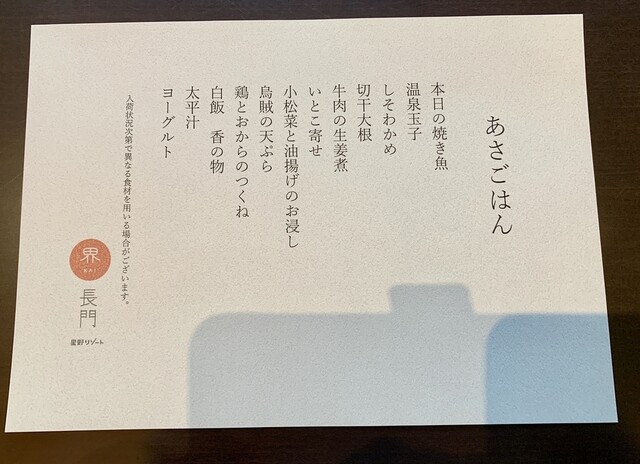 あさごはん
本日の焼き魚
温泉玉子
しそわかめ
切干大根
牛肉の生姜煮
いとこ寄せ
小松菜と油揚げのお浸し
烏賊の天ぷら
鶏とおからのつくね
白飯　香の物
太平汁
ヨーグルト
入荷状況次第で異なる食材を用いる場合がございます。
界
KAI
長門
星野リゾート